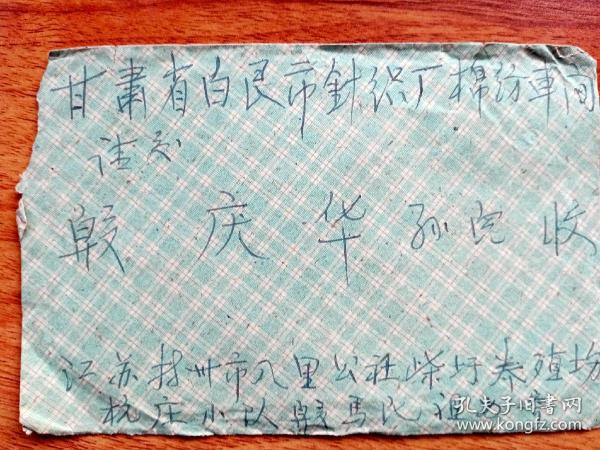 甘肃省白艮市針织厂棉纺車间
请交
殷庆华孙儿收
江苏扬州市八里公社柴圩养殖场
杭庄小队殷馬民
孔夫子旧书网
www.kongfz.com